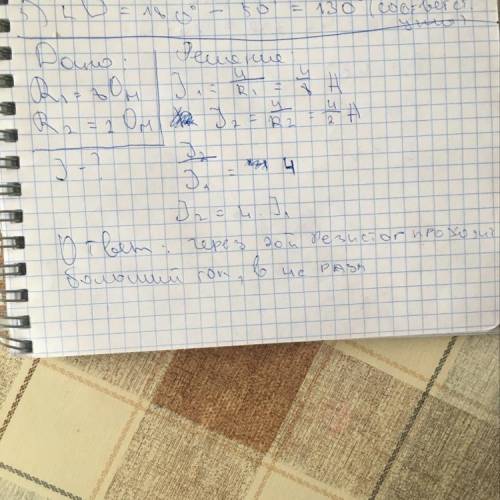 5) ∠D = 180° - 50 = 130 (соответ.
углы)
Дано:
R₁ = 8 Ом
R₂ = 2 Ом
J - ?
Решение:
J₁ = U/R₁ = U/8 A
J₂ = U/R₂ = U/2 A
J₂/J₁ = 4
J₂ = 4 · J₁
Ответ: через 2ой резистор проходит
больший ток, в че раза